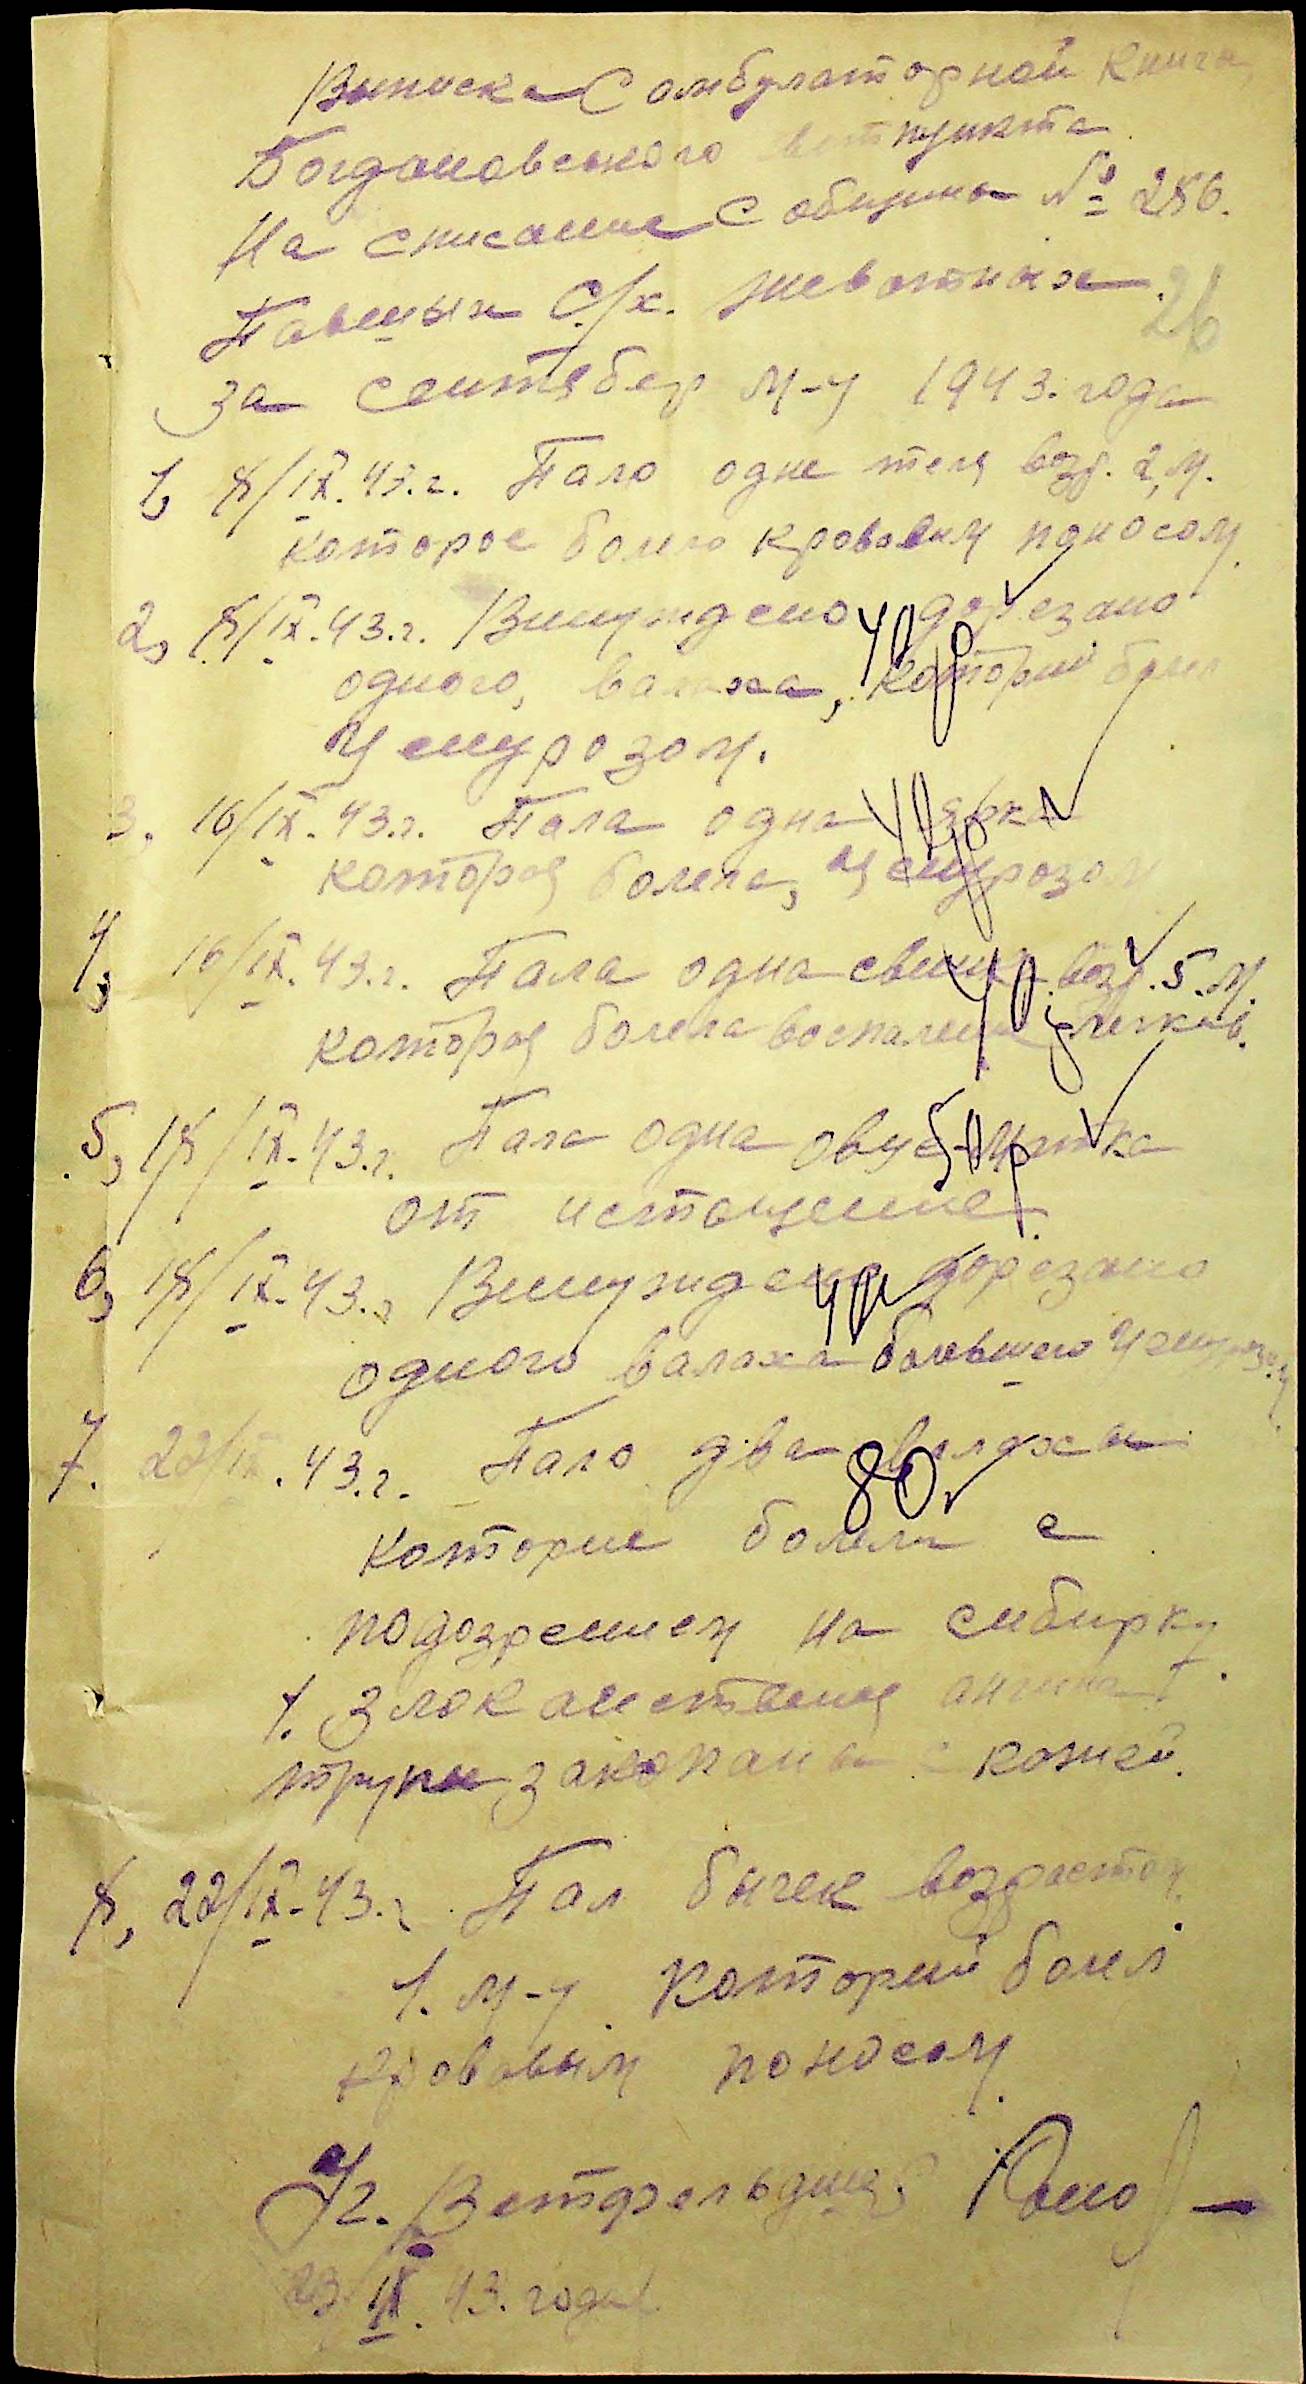 Выписка С амбулаторной Книги
Богдановського ветпункта
На списание С общины № 286.
Павшых С/х. жевотных
26
За сентябер м-ц 1943. года
1, 8/IX.43.г. Пало одне теля возр. 2,м.
которое болело кровавим поносом
2, 8/IX.43.г. Внуждено дорезано
40
одного, валаха, который болел
Ценурозом.
3. 16/IX.43.г. Пала одна ярка
40
которая болела, ценурозом
4, 16/IX.43.г. Пала одна свиня возр. 5.м.
40
которая болела воспаление легких.
5, 18/IX.43.г. Пала одна овце-матка
50
от истощение.
6, 18/IX.43.г. Внуждено дорезано
40
одного валаха болевшего Ценурозом
7. 22/IX.43.г. Пало два валаха
80
которые болели с
подозрением на сибирку
1. Злокачественая ангина
трупы закопаны с кожей.
8, 22/IX.43.г. Пал бычек возрастом
1. м-ц который болел
кровавым поносом
Уг. Ветфельдшер
23 IX. 43. года